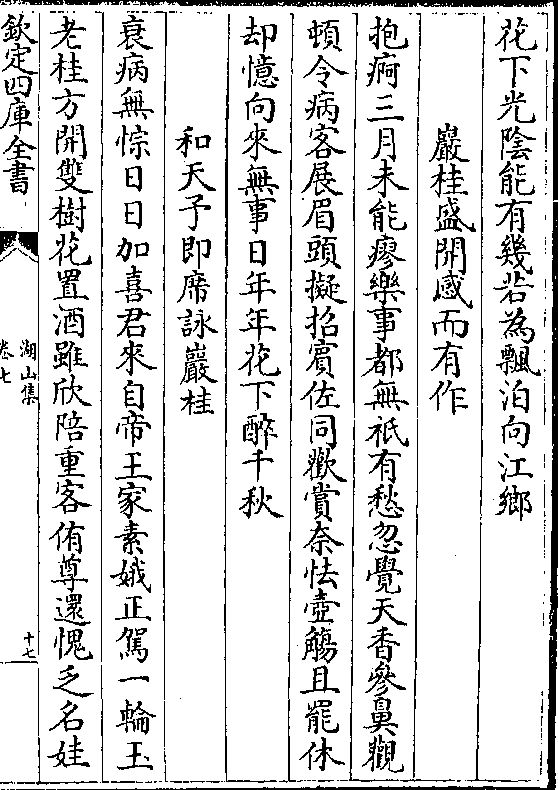 花下光陰能有幾若為飄泊向江鄉
巖桂盛開感而有作
抱痾三月未能瘳樂事都無祇有愁忽覺天香參鼻觀
頓令病客展眉頭擬招賓佐同歡賞奈怯壺觴且罷休
却憶向來無事日年年花下醉千秋
和天子即席詠巖桂
衰病無悰日日加喜君來自帝王家素娥正駕一輪玉
老桂方開雙樹花置酒雖欣陪重客侑尊還愧乏名娃
欽定四庫全書
湖山集
卷七
十七